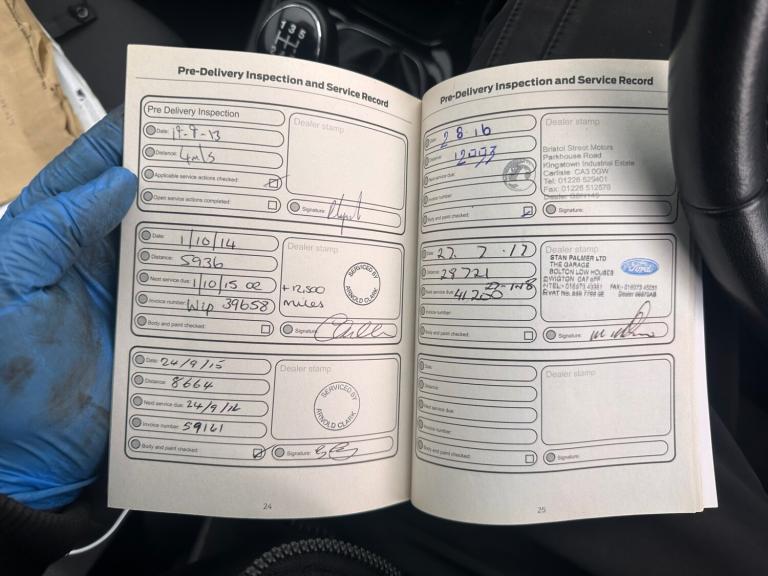 Pre-Delivery Inspection and Service Record
Pre Delivery Inspection
Date: 17-9-13
Distance: 4 mls
Applicable service actions checked:
Open service actions completed:
Dealer stamp
Signature:
Date: 1/10/14
Distance: 5936
Next service due: 1/10/15 OR
Invoice number: Wip 39658
Body and paint checked:
Dealer stamp
+12,500
miles
SERVICED BY
ARNOLD CLARK
Signature:
Date: 24/9/15
Distance: 8664
Next service due: 24/9/16
Invoice number: 59161
Body and paint checked:
Dealer stamp
SERVICED BY
ARNOLD CLARK
Signature:
24
Pre-Delivery Inspection and Service Record
Date: 2 8 16
Distance: 12003
Next service due:
Invoice number:
Body and paint checked:
Dealer stamp
Bristol Street Motors
Parkhouse Road
Kingstown Industrial Estate
Carlisle CA3 0GW
Tel: 01228 529401
Fax: 01228 512578
Signature:
Date: 27. 7 .17
Distance: 28721
Next service due: 41200 27-7-18
Invoice number:
Body and paint checked:
Dealer stamp
STAN PALMER LTD
THE GARAGE
BOLTON LOW HOUSES
WIGTON
Ford
Signature:
Date:
Distance:
Next service due:
Invoice number:
Body and paint checked:
Dealer stamp
Signature:
25
1 3 5